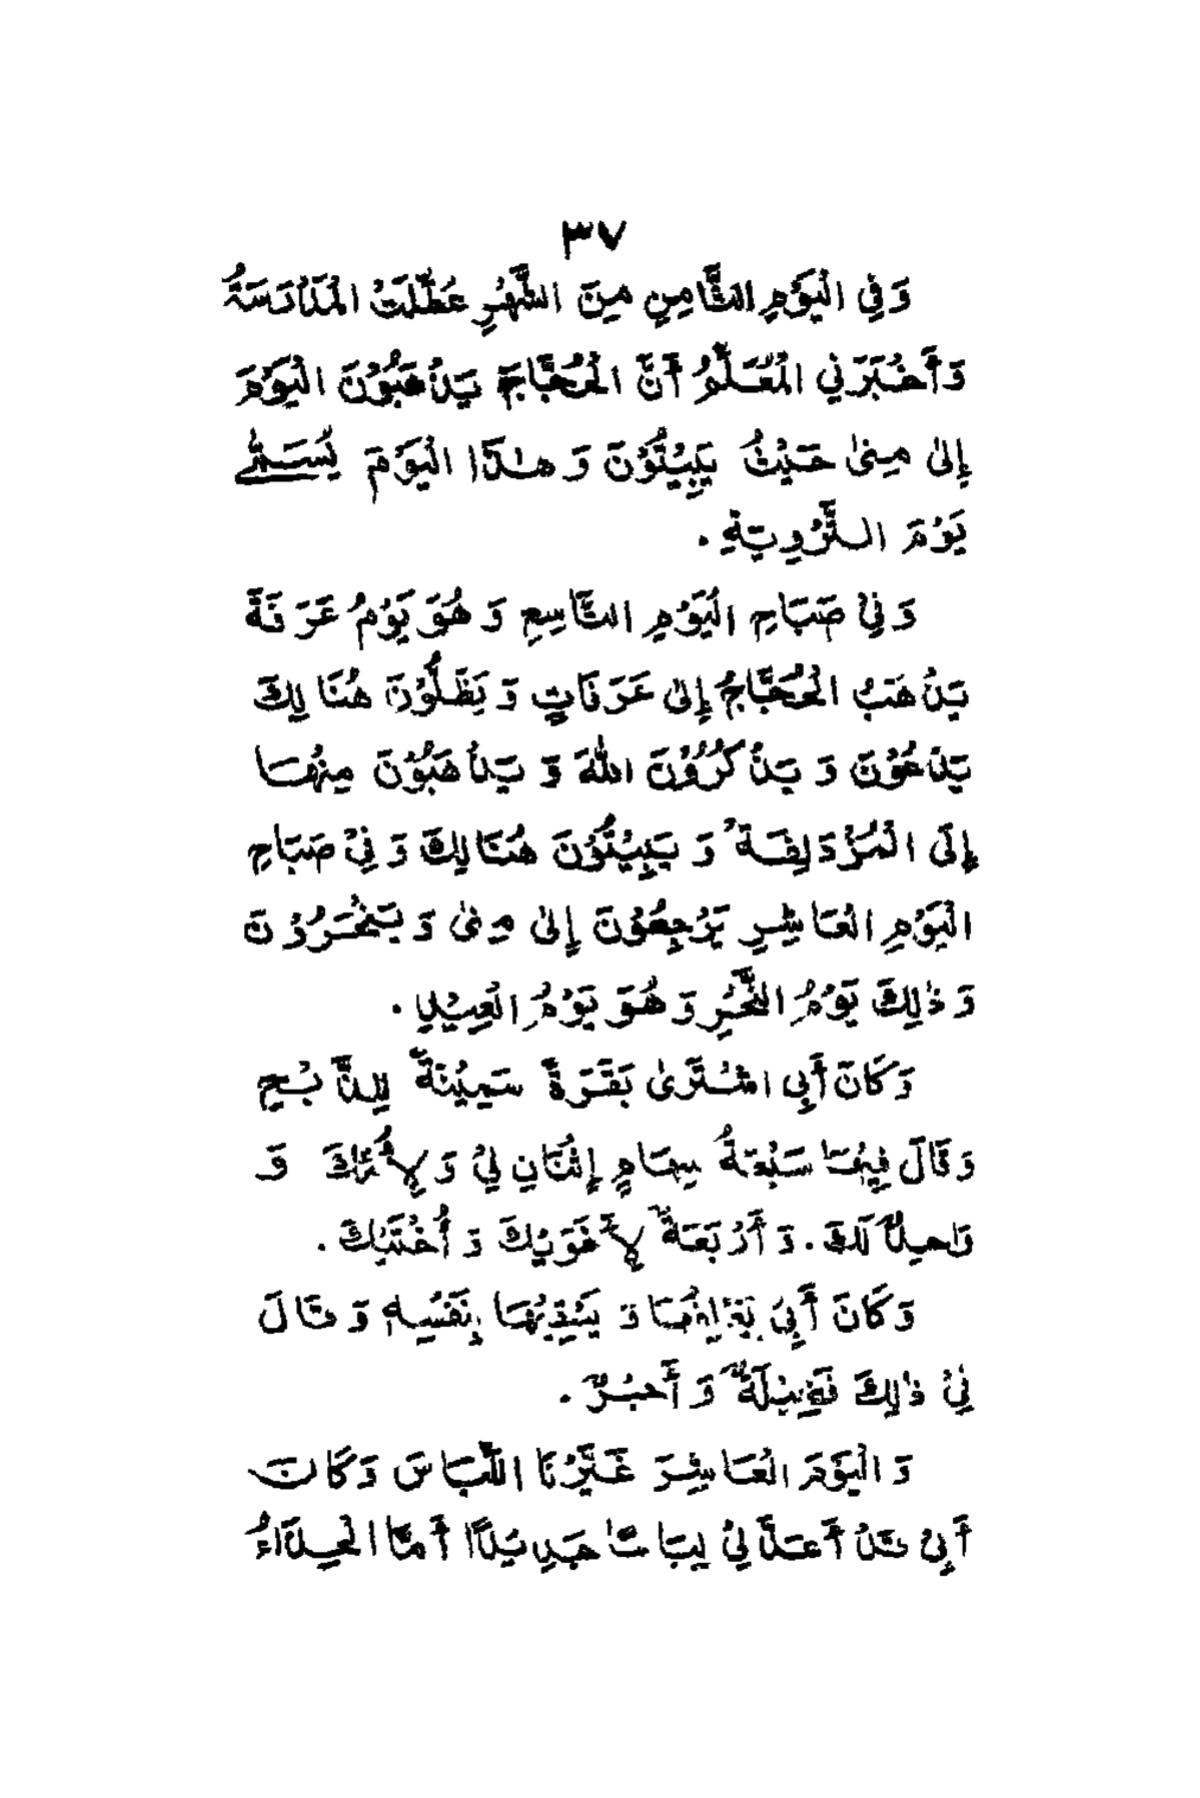 ٣٧
وَفِي الْيَوْمِ الثَّامِنِ مِنَ الشَّهْرِ عُطِّلَتْ الْمَدْرَسَةُ
وَأَخْبَرَنِي الْمُعَلِّمُ أَنَّ الْحُجَّاجَ يَذْهَبُوْنَ الْيَوْمَ
إِلىٰ مِنىٰ حَيْثُ يَبِيْتُوْنَ وَهٰذَا الْيَوْمَ يُسَمّٰى
يَوْمَ التَّرْوِيَةِ .
وَفِيْ صَبَاحِ الْيَوْمِ التَّاسِعِ وَهُوَ يَوْمُ عَرَفَةَ
يَذْهَبُ الْحُجَّاجُ إِلىٰ عَرَفَاتٍ وَيَظَلُّوْنَ هُنَالِكَ
يَدْعُوْنَ وَيَذْكُرُوْنَ اللهَ وَيَذْهَبُوْنَ مِنْهَا
إِلَى الْمُزْدَلِفَةِ وَيَبِيْتُوْنَ هُنَالِكَ وَفِيْ صَبَاحِ
الْيَوْمِ الْعَاشِرِ يَرْجِعُوْنَ إِلىٰ مِنىٰ وَيَنْحَرُوْنَ
وَذٰلِكَ يَوْمُ النَّحْرِ وَهُوَ يَوْمُ الْعِيْدِ .
وَكَانَ أَبِي اشْتَرىٰ بَقَرَةً سَمِيْنَةً لِلذَّبْحِ
وَقَالَ فِيْهَا سَبْعَةُ سِهَامٍ إِثْنَانِ لِيْ وَلِأُمِّكَ وَ
وَاحِدٌ لَكَ . وَأَرْبَعَةٌ لِأَخَوَيْكَ وَأُخْتَيْكَ .
وَكَانَ أَبِيْ يَعْلِفُهَا وَيَسْقِيْهَا بِنَفْسِهٖ وَقَالَ
لِيْ ذٰلِكَ فَضِيْلَةٌ وَأَجْرٌ .
وَالْيَوْمَ الْعَاشِرَ غَيَّرْنَا اللِّبَاسَ وَكَانَ
أَبِيْ قَدْ أَعَدَّ لِيْ لِبَاسًا جَدِيْدًا أَمَّا الْحِذَاءُ